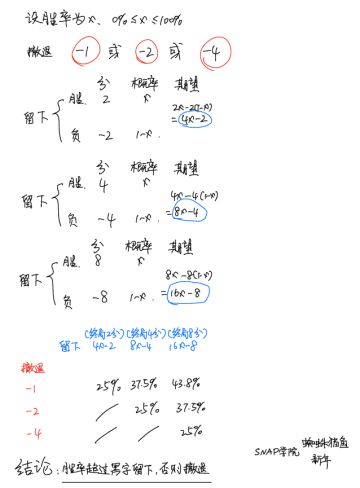 设胜率为x、0%≤x≤100%
撤退 -1 或 -2 或 -4
分 概率 期望
留下 胜 2 x 2x-2(1-x)
=4x-2
负 -2 1-x.
分 概率 期望
留下 胜 4 x 4x-4(1-x)
=8x-4
负 -4 1-x.
分 概率 期望
留下 胜 8 x 8x-8(1-x)
=16x-8
负 -8 1-x.
(终局2分) (终局4分) (终局8分)
留下 4x-2 8x-4 16x-8
撤退
-1 25% 37.5% 43.8%
-2 / 25% 37.5%
-4 / / 25%
SNAP学院 蜘蛛猪鱼
新年
结论:胜率超过黑字留下,否则撤退